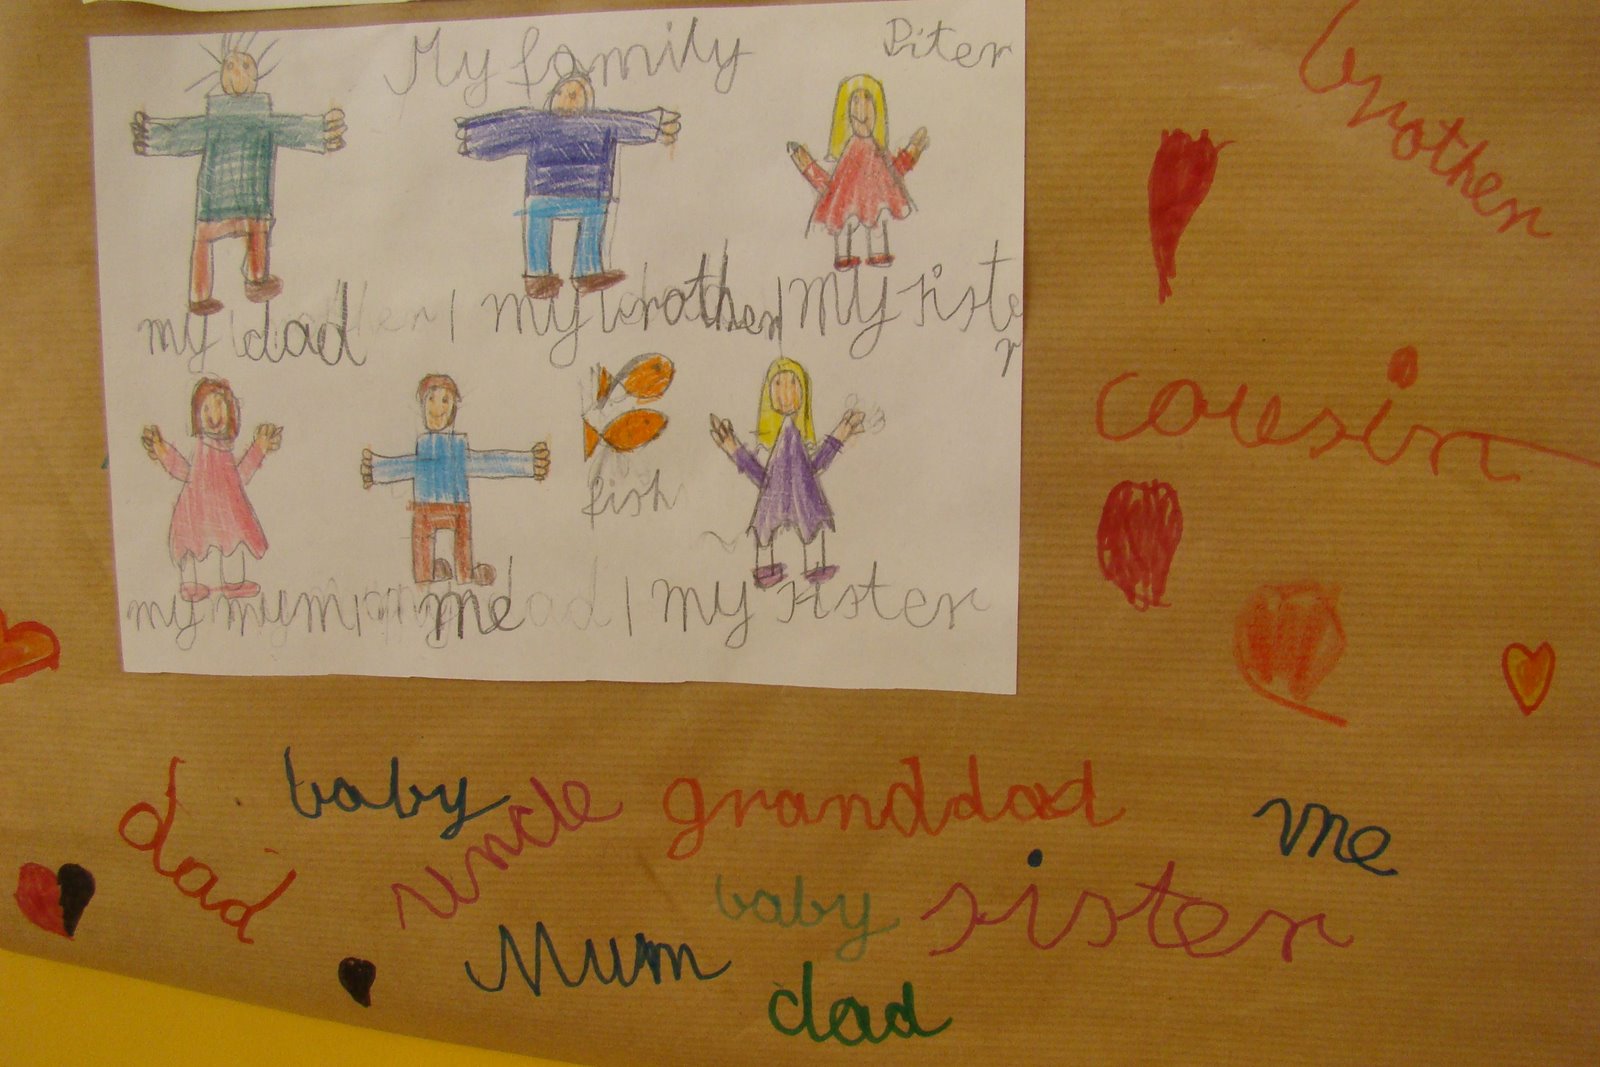 My family
Piter
my dad | my brother | my siste
r
fish
my mum | me | my sister
brother
cousin
baby
uncle
granddad
me
dad
baby
sister
Mum
dad